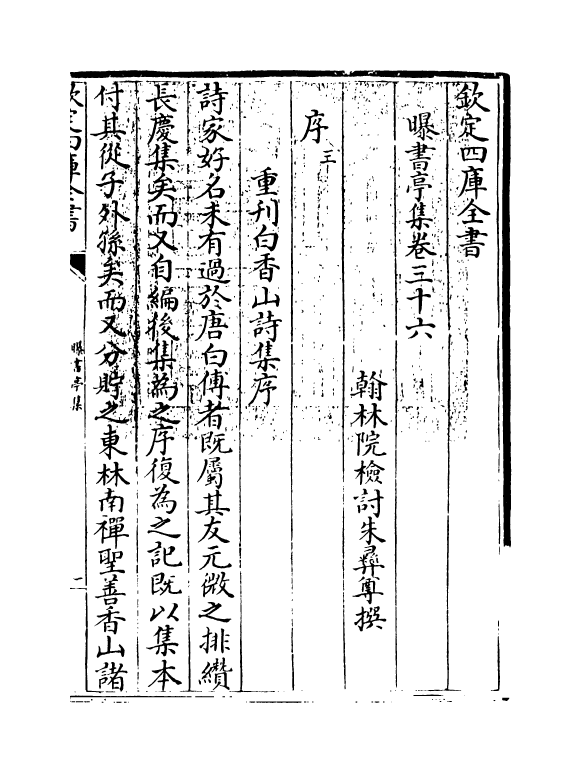 欽定四庫全書
曝書亭集卷三十六
翰林院檢討朱彝尊撰
序三
重刋白香山詩集序
詩家好名未有過於唐白傅者既屬其友元微之排纘
長慶集矣而又自編後集為之序復為之記既以集本
付其從子外孫矣而又分貯之東林南禪聖善香山諸
欽定四庫全書
曝書亭集